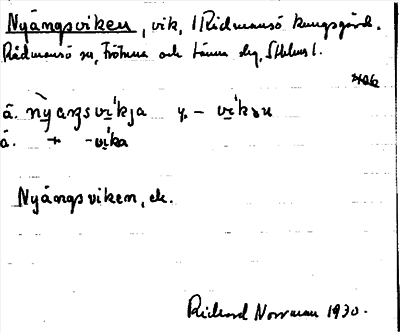 Nyängsviken, vik, / Rådmansö kungsgård.
Rådmansö sn, Frötuna och Länna skg, Sthlms l.
406
ä. nỳaŋsvi̱kja y. – vi̱kən
ä. + -vi̱ka
Nyängsviken, ek.
Rickard Norrman 1930.